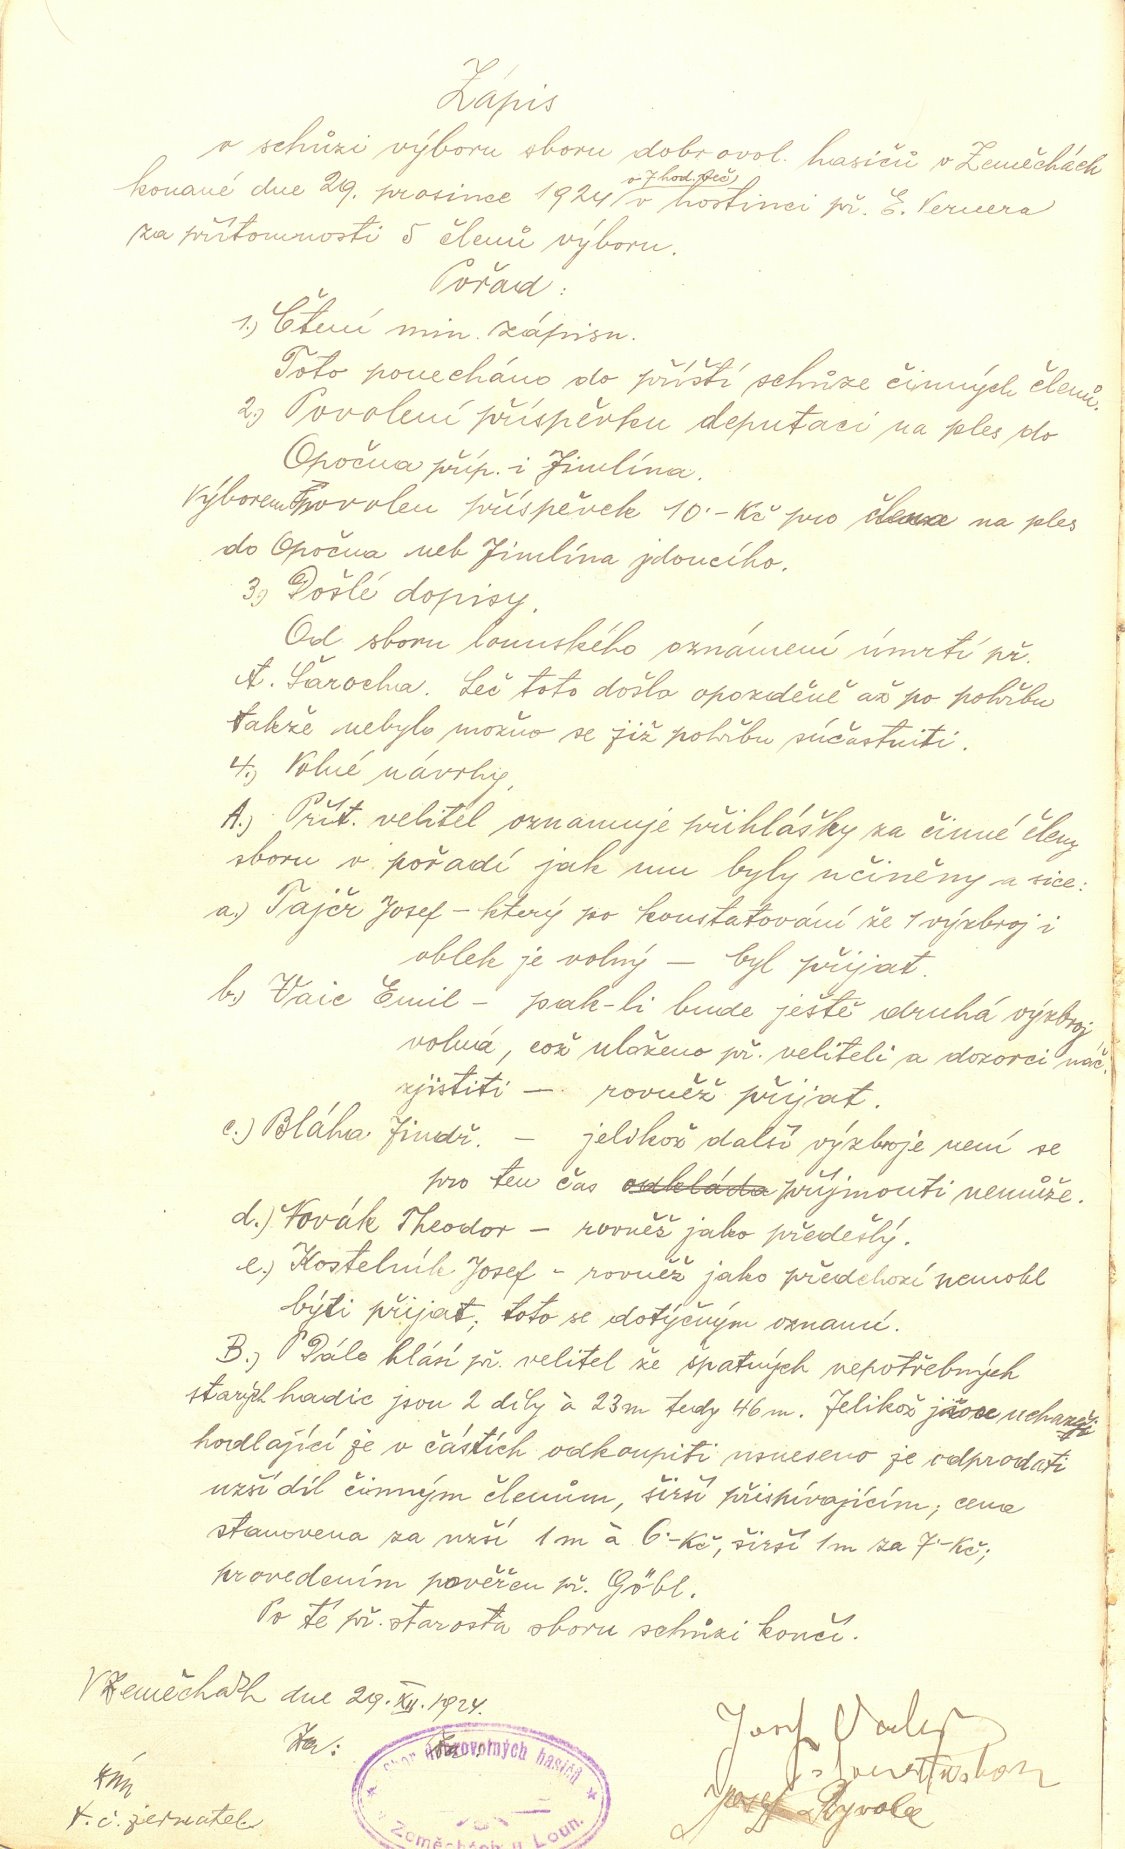 Zápis
o schůzi výboru sboru dobrovol. hasičů v Zeměchách
konané dne 29. prosince 1924 o 7 hod. več. v hostinci př. E. Vernera
za přítomnosti 5 členů výboru.
Pořad:
1.) Čtení min. zápisu.
Toto ponecháno do příští schůze činných členů.
2.) Povolení příspěvku deputaci na ples do
Opočna příp. i Jimlína.
Výborem povolen příspěvek 10.- Kč pro člena na ples
do Opočna neb Jimlína jdoucího.
3.) Došlé dopisy.
Od sboru lounského oznámení úmrtí př.
A. Šarocha. Leč toto došlo opozděně až po pohřbu
takže nebylo možno se již pohřbu súčastniti.
4.) Volné návrhy.
A.) Přít. velitel oznamuje přihlášky za činné členy
sboru v pořadí jak mu byly učiněny a sice:
a.) Tajčr Josef – který po konstatování že 1 výzbroj i
oblek je volný — byl přijat.
b.) Vaic Emil – pak-li bude ještě druhá výzbroj
volná, což uloženo př. veliteli a dozorci nář.
zjistiti — rovněž přijat.
c.) Bláha Jindř. – jelikož další výzbroje není se
pro ten čas odkládá příjmouti nemůže.
d.) Novák Theodor – rovněž jako předešlý.
e.) Kostelník Josef – rovněž jako předchozí nemohl
býti přijat; toto se dotýčným oznámí.
B.) Dále hlásí př. velitel že špatných nepotřebných
starých hadic jsou 2 díly à 23 m tedy 46 m. Jelikož jsou uchazeči
hodlající je v částích odkoupiti usneseno je odprodati
užší díl činným členům, širší přispívajícím; cena
stanovena za užší 1 m à 6.- Kč, širší 1 m za 7.- Kč;
provedením pověřen př. Göbl.
Po té př. starosta sboru schůzi končí.
V Zeměchách dne 29. XII. 1924.
Za:
Sbor dobrovolných hasičů
v Zeměchách u Loun.
t. č. jednatel
Josef
Josef Ryvola